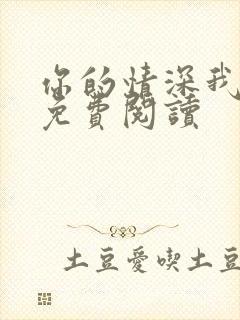 你的情深我
免費閱讀
土豆愛喫土豆